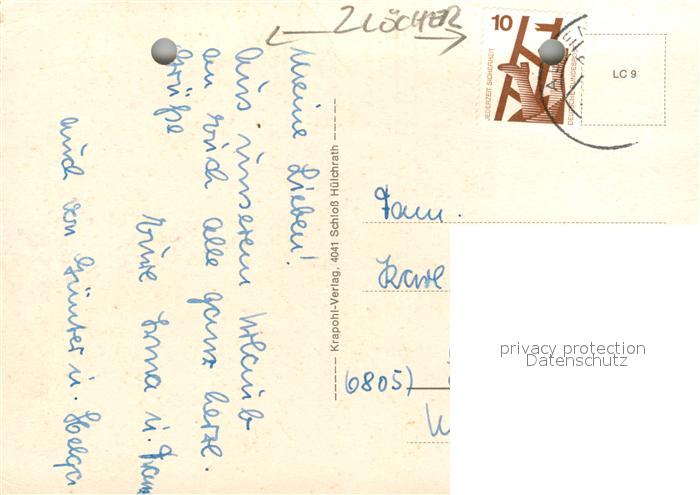 2 LÖCHER
10
JEDERZEIT SICHERHEIT
LC 9
Meine Lieben!
Aus unserem Urlaub
an euch alle ganz herzl.
Grüße
Eure Erna u.
auch von Günter u. Helga
Krapohl-Verlag, 4041 Schloß Hülchrath
Fam.
Karl
(6805)
privacy protection
Datenschutz